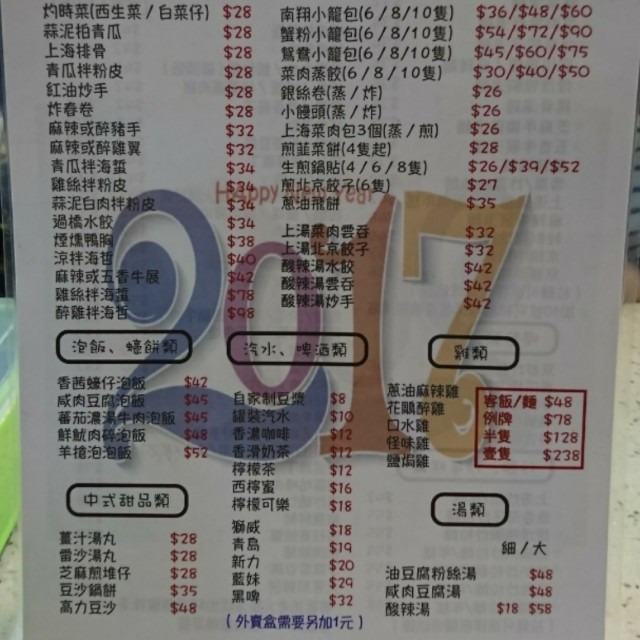 灼時菜(西生菜/白菜仔) $28
蒜泥拍青瓜 $28
上海排骨 $28
青瓜拌粉皮 $28
紅油炒手 $28
炸春卷 $28
麻辣或醉豬手 $32
麻辣或醉雞翼 $32
青瓜拌海蜇 $34
雞絲拌粉皮 $34
蒜泥白肉拌粉皮 $34
過橋水餃 $34
煙燻鴨胸 $38
涼拌海哲 $40
麻辣或五香牛展 $42
雞絲拌海蜇 $78
醉雞拌海哲 $98
南翔小籠包(6/8/10隻) $36/$48/$60
蟹粉小籠包(6/8/10隻) $54/$72/$90
鴛鴦小籠包(6/8/10隻) $45/$60/$75
菜肉蒸餃(6/8/10隻) $30/$40/$50
銀絲卷(蒸/炸) $26
小饅頭(蒸/炸) $26
上海菜肉包3個(蒸/煎) $26
煎韮菜餅(4隻起) $28
生煎鍋貼(4/6/8隻) $26/$39/$52
煎北京餃子(6隻) $27
蔥油飛餅 $35
上湯菜肉雲吞 $32
上湯北京餃子 $32
酸辣湯水餃 $42
酸辣湯雲吞 $42
酸辣湯炒手 $42
Happy New Year
2017
泡飯、蠔餅類
香茜蠔仔泡飯 $42
咸肉豆腐泡飯 $45
蕃茄濃湯牛肉泡飯 $45
鮮魷肉碎泡飯 $48
羊搶泡泡飯 $52
中式甜品類
薑汁湯丸 $28
雷沙湯丸 $28
芝麻煎堆仔 $28
豆沙鍋餅 $35
高力豆沙 $48
汽水、啤酒類
自家制豆漿 $8
罐裝汽水 $10
香濃咖啡 $12
香滑奶茶 $12
檸檬茶 $12
西檸蜜 $16
檸檬可樂 $18
獅威 $18
青島 $19
新力 $20
藍妹 $29
黑啤 $32
(外賣盒需要另加1元)
雞類
蔥油麻辣雞
花鵰醉雞
口水雞
怪味雞
鹽焗雞
客飯/麵 $48
例牌 $78
半隻 $128
壹隻 $238
湯類
細/大
油豆腐粉絲湯 $48
咸肉豆腐湯 $48
酸辣湯 $18 $58